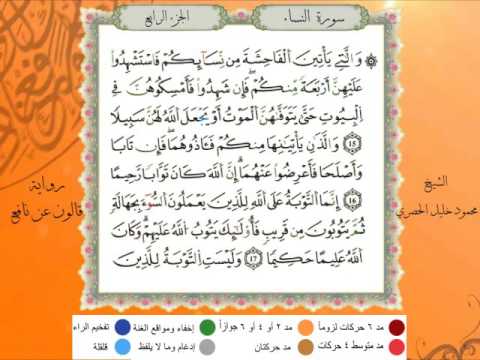 سورة النساء
الجزء الرابع
وَالَّتِي يَأْتِينَ الْفَاحِشَةَ مِن نِّسَآئِكُمْ فَاسْتَشْهِدُوا
عَلَيْهِنَّ أَرْبَعَةً مِّنكُمْ فَإِن شَهِدُوا فَأَمْسِكُوهُنَّ فِي
الْبِيُوتِ حَتَّىٰ يَتَوَفَّاهُنَّ الْمَوْتُ أَوْ يَجْعَلَ اللَّهُ لَهُنَّ سَبِيلًا
15 وَالَّذَانِ يَأْتِيَانِهَا مِنكُمْ فَـَٔاذُوهُمَا فَإِن تَابَا
وَأَصْلَحَا فَأَعْرِضُوا عَنْهُمَا إِنَّ اللَّهَ كَانَ تَوَّابًا رَّحِيمًا
16 إِنَّمَا التَّوْبَةُ عَلَى اللَّهِ لِلَّذِينَ يَعْمَلُونَ السُّوٓءَ بِجَهَالَةٍ
ثُمَّ يَتُوبُونَ مِن قَرِيبٍ فَأُوْلَـٰٓئِكَ يَتُوبُ اللَّهُ عَلَيْهِمْ وَكَانَ
اللَّهُ عَلِيمًا حَكِيمًا 17 وَلَيْسَتِ التَّوْبَةُ لِلَّذِينَ
الشيخ
محمود خليل الحصري
رواية
قالون عن نافع
مد ٦ حركات لزوماً
مد ٢ أو ٤ أو ٦ جوازاً
إخفاء ومواقع الغنة
تفخيم الراء
مد متوسط ٤ حركات
مد حركتان
إدغام وما لا يلفظ
قلقلة